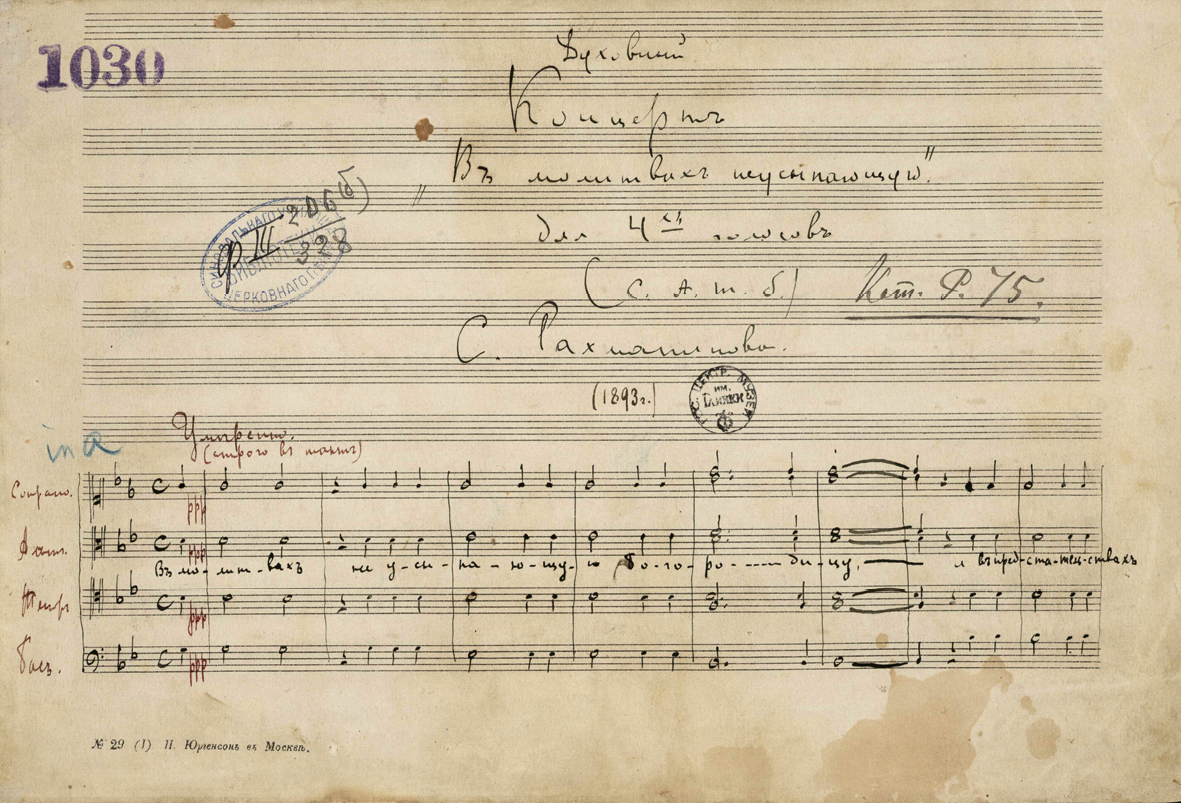 1030
Духовный
Концертъ
"Въ молитвахъ неусыпающую"
для 4хъ голосовъ
(С. А. Т. Б.)
Кат. Р. 75.
С. Рахманинова.
(1893 г.)
ГОС. ЦЕНТР. МУЗЕЙ
ИМ.
ГЛИНКИ
СИНОДАЛЬНАГО
БИБЛИОТЕКА
ЦЕРКОВНАГО ПѢНІЯ
Ф III 206(б)
328
in a
Умѣренно.
(строго въ тактъ)
Сопрано.
ppp
Альт.
ppp
Въ мо-лит-вахъ не у-сы-па-ю-щу-ю Бо-го-ро----ди-цу, и въ пред-ста-тель-ствахъ
Тенор
ppp
Басъ.
ppp
№ 29 (I) П. Юргенсонъ въ Москвѣ.